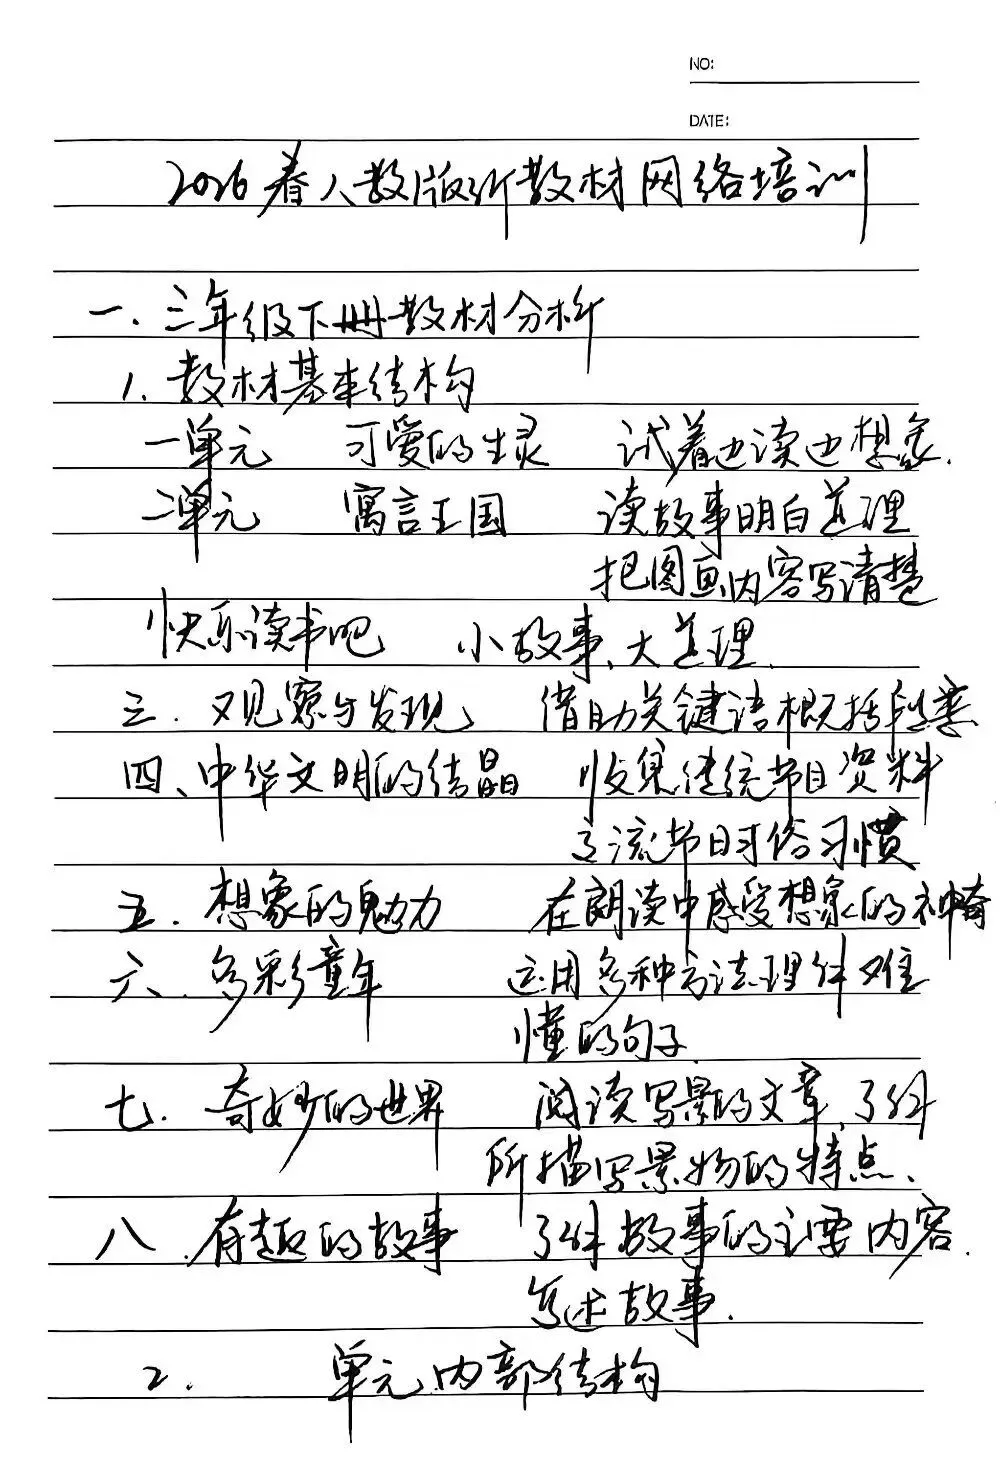 NO:
DATE:
2026春人教版新教材网络培训
一、三年级下册教材分析
1、教材基本结构
一单元 可爱的生灵 试着边读边想象.
二单元 寓言王国 读故事明白道理
把图画内容写清楚
快乐读书吧 小故事、大道理.
三、观察与发现 借助关键语概括段意
四、中华文明的结晶 收集传统节日资料
交流节日时俗习惯
五、想象的魅力 在朗读中感受想象的神奇
六、多彩童年 运用多种方法理解难
懂的句子.
七、奇妙的世界 阅读写景的文章,了解
所描写景物的特点、
八、有趣的故事 了解故事的主要内容.
复述故事.
2、 单元内部结构